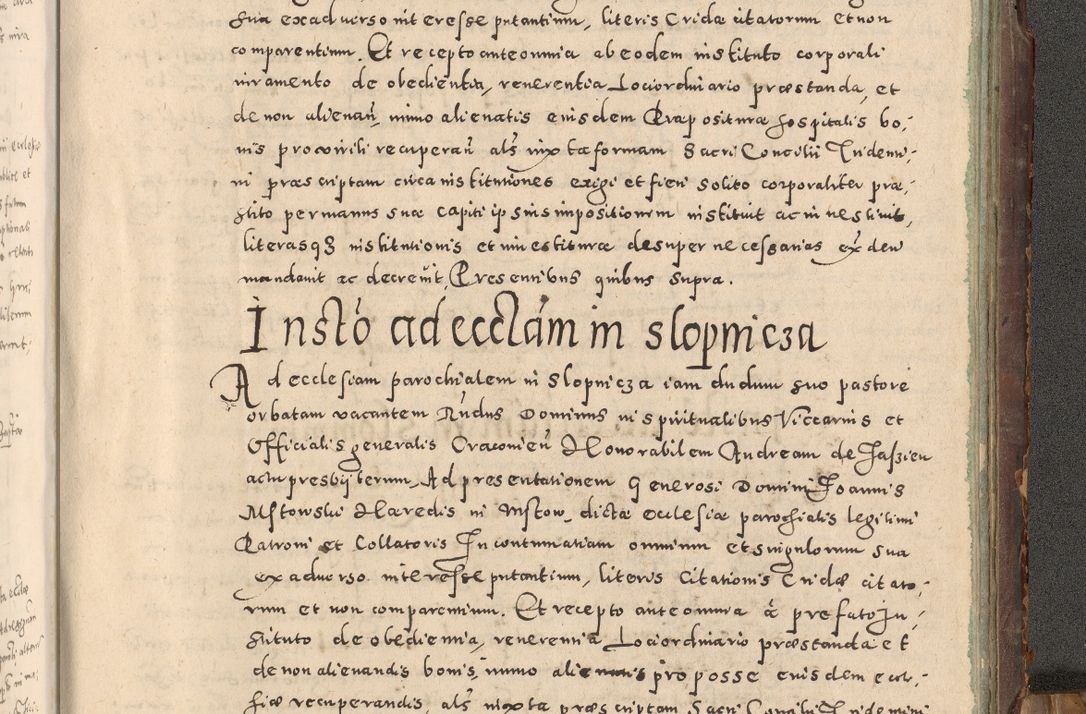 sua ex aduerso interesse putantium, literis Cridæ citatorum et non
comparentium. Et recepto ante omnia ab eodem instituto corporali
iuramento de obedientia, reuerentia Loci ordinario præstanda, et
de non alienan̄, immo alienatis eiusdem Præpositurae hospitalis bo,,
nis pro virili recuperan̄ als iuxta formam Sacri Concilii Tridenti,,
ni præscriptam circa institutiones exigi et fieri solito corporaliter præ,,
stito per manus suæ capiti ipsius impositionem instituit ac inuestiuit,
literasqȝ institutionis et inuestituræ desuper necessarias exden̄
mandauit ac decreuit, Presentibus quibus supra.
Insto ad ecclām in Slopnicza
Ad ecclesiam parochialem in Slopnicza iam dudum suo pastore
orbatam vacantem Rn̄dus Dominus in spiritualibus Viccarius et
Officialis generalis Cracouien̄ Honorabilem Andream de Jaszien
actu presbÿterum, Ad presentationem Generosi Domini Joannis
Mstowski Hæredis in Mstow, dictæ ecclesiæ parochialis legitimi
Patroni et Collatoris In contumatiam omnium et singulorum sua
ex aduerso interesse putantium, literis Citationis Cridæ citato,,
rum et non comparentium. Et recepto ante omnia à prefato In,,
stituto de obedientia, reuerentia Loci ordinario præstanda et
de non alienandis bonis, immo alienatis pro posse eiusdem eccle,,
siæ recuperandis, als iuxta præscriptam Sacri Concilii Tridentini